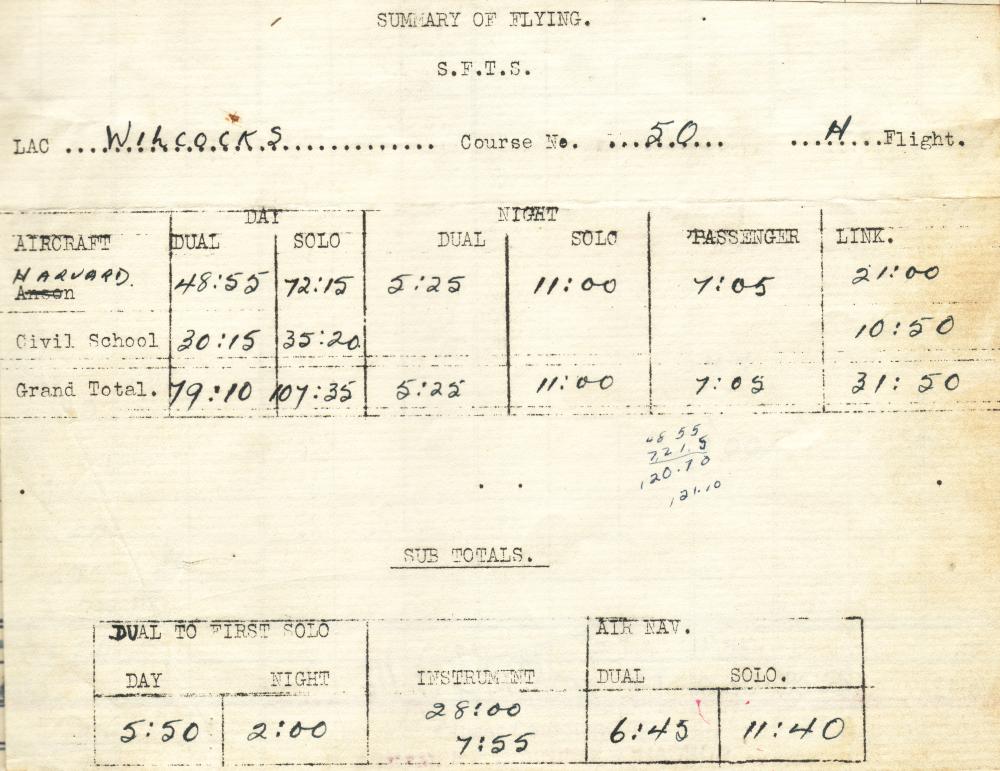 SUMMARY OF FLYING.
S.F.T.S.
LAC ....Wihcocks.............. Course No. ...50... ....H....Flight.
DAY NIGHT
AIRCRAFT DUAL SOLO DUAL SOLO PASSENGER LINK.
HARVARD. 48:55 72:15 5:25 11:00 7:05 21:00
Anson
Civil School 30:15 35:20 10:50
Grand Total. 79:10 107:35 5:25 11:00 7:05 31:50
48 55
72 15
120.70
121.10
SUB TOTALS.
DUAL TO FIRST SOLO AIR NAV.
DAY NIGHT INSTRUMENT DUAL SOLO.
28:00
5:50 2:00 7:55 6:45 11:40